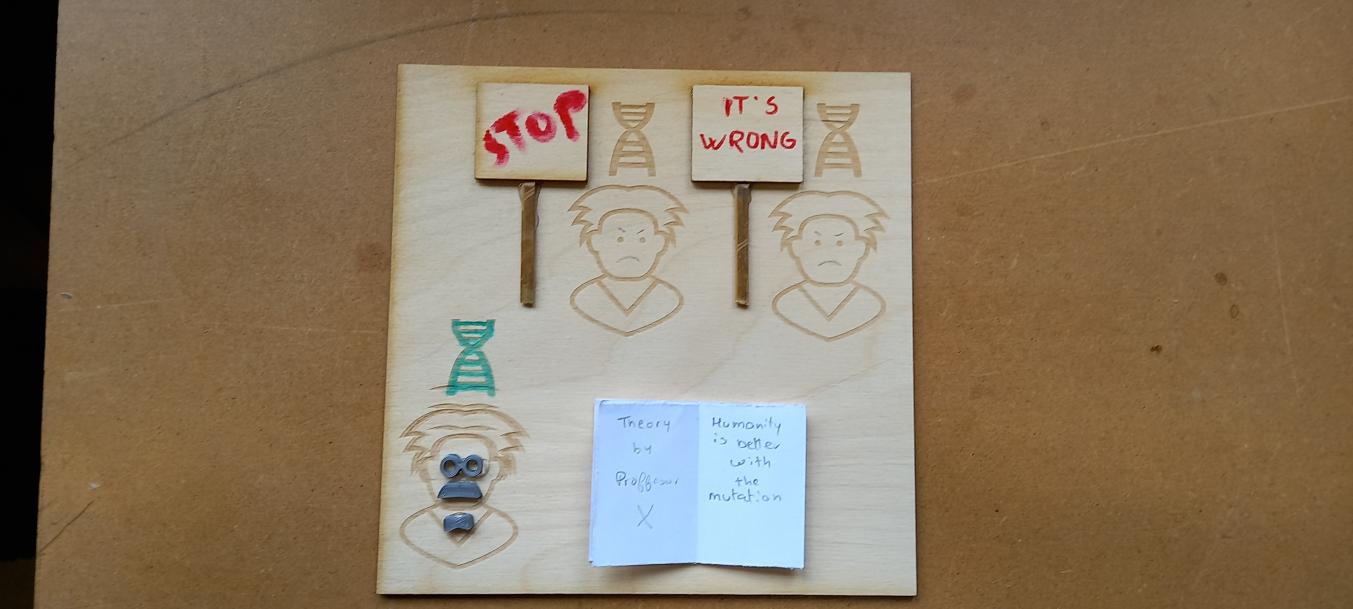 STOP
IT'S
WRONG
Theory
by
Proffesur
X
Humanity
is better
with
the
mutation